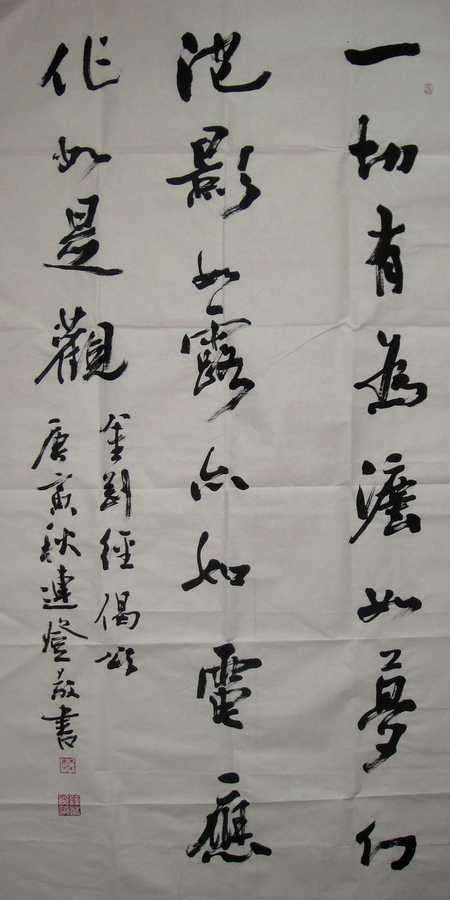 一切有為灋如夢幻
泡影如露亦如電應
作如是觀
金剛經偈頌
庚寅秋連登敬書